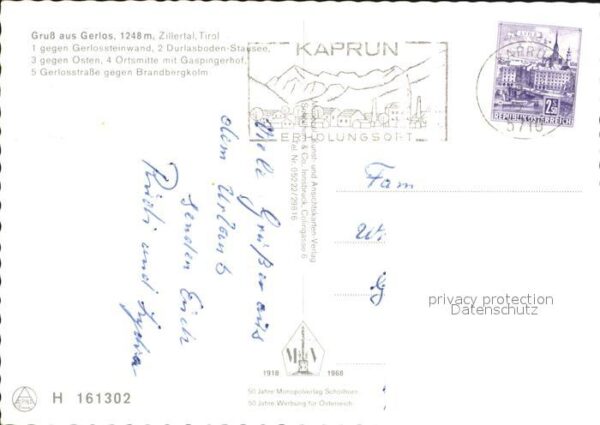 Gruß aus Gerlos, 1248 m, Zillertal, Tirol
1 gegen Gerlossteinwand, 2 Durlasboden-Stausee,
3 gegen Osten, 4 Ortsmitte mit Gaspingerhof,
5 Gerlosstraße gegen Brandbergkolm
KAPRUN
ERHOLUNGSORT
5710
2.50
REPUBLIK ÖSTERREICH
Viele Grüße aus
dem Urlaub
senden Euch
Rudi und Lydia
Kunst- und Ansichtskarten-Verlag
& Co., Innsbruck, Colingasse 6
Tel. Nr. 05222/29816
Fam
privacy protection
Datenschutz
M V
1918 1968
50 Jahre Monopolverlag Schöllhorn
50 Jahre Werbung für Österreich
H 161302